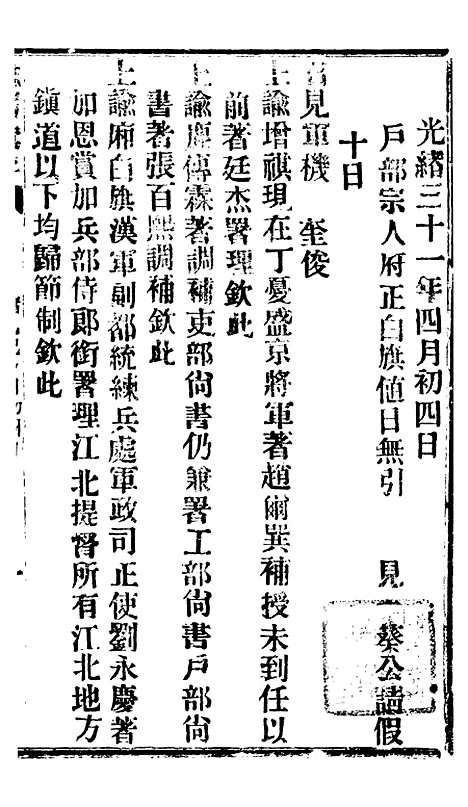 光緒三十一年四月初四日
戶部宗人府正白旗値日無引　見　葵公請假
十日
召見軍機　奎俊
上諭增祺現在丁憂盛京將軍著趙爾巽補授未到任以
前著廷杰署理欽此
上諭鹿傳霖著調補吏部尙書仍兼署工部尙書戶部尙
書著張百熙調補欽此
上諭廂白旗漢軍副都統練兵處軍政司正使劉永慶著
加恩賞加兵部侍郞銜署理江北提督所有江北地方
鎭道以下均歸節制欽此